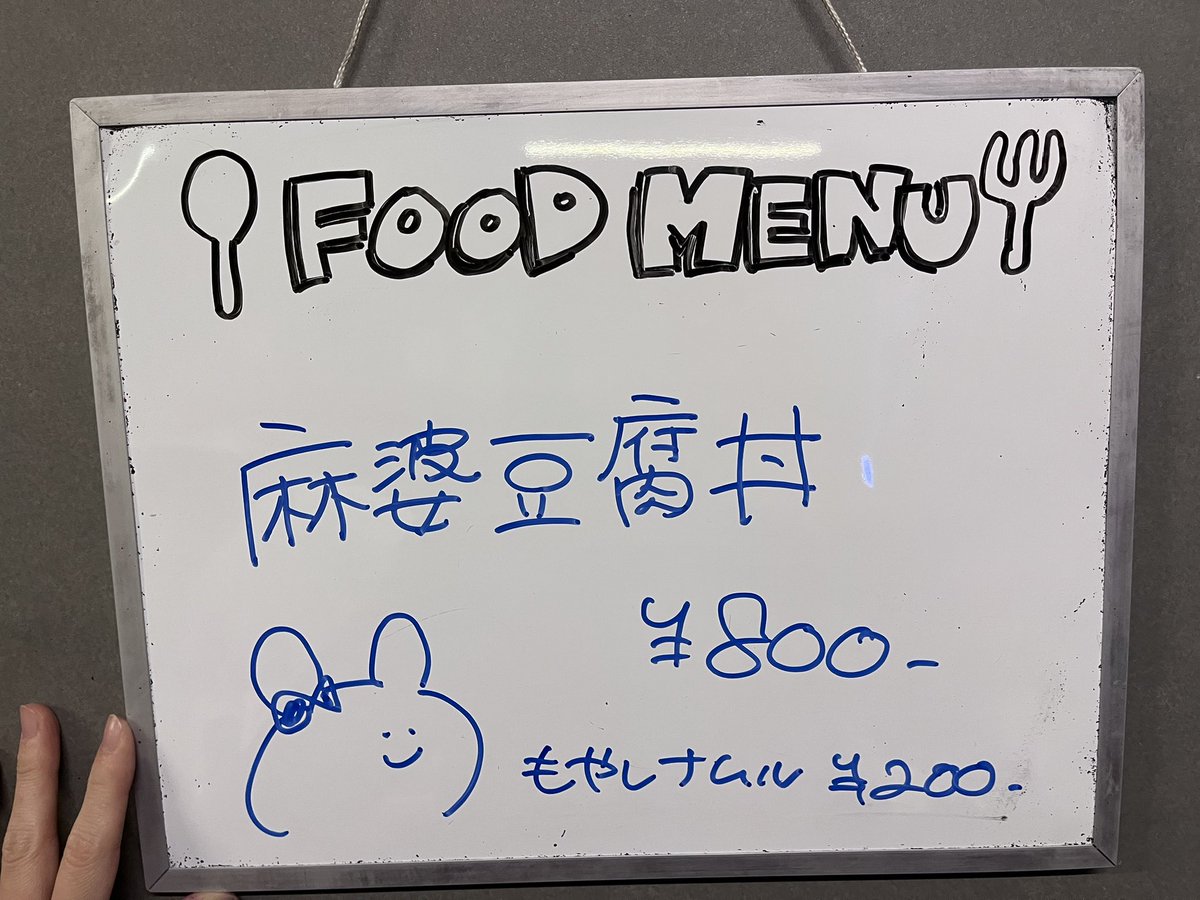 FOOD MENU
麻婆豆腐丼
¥800-
もやしナムル ¥200-